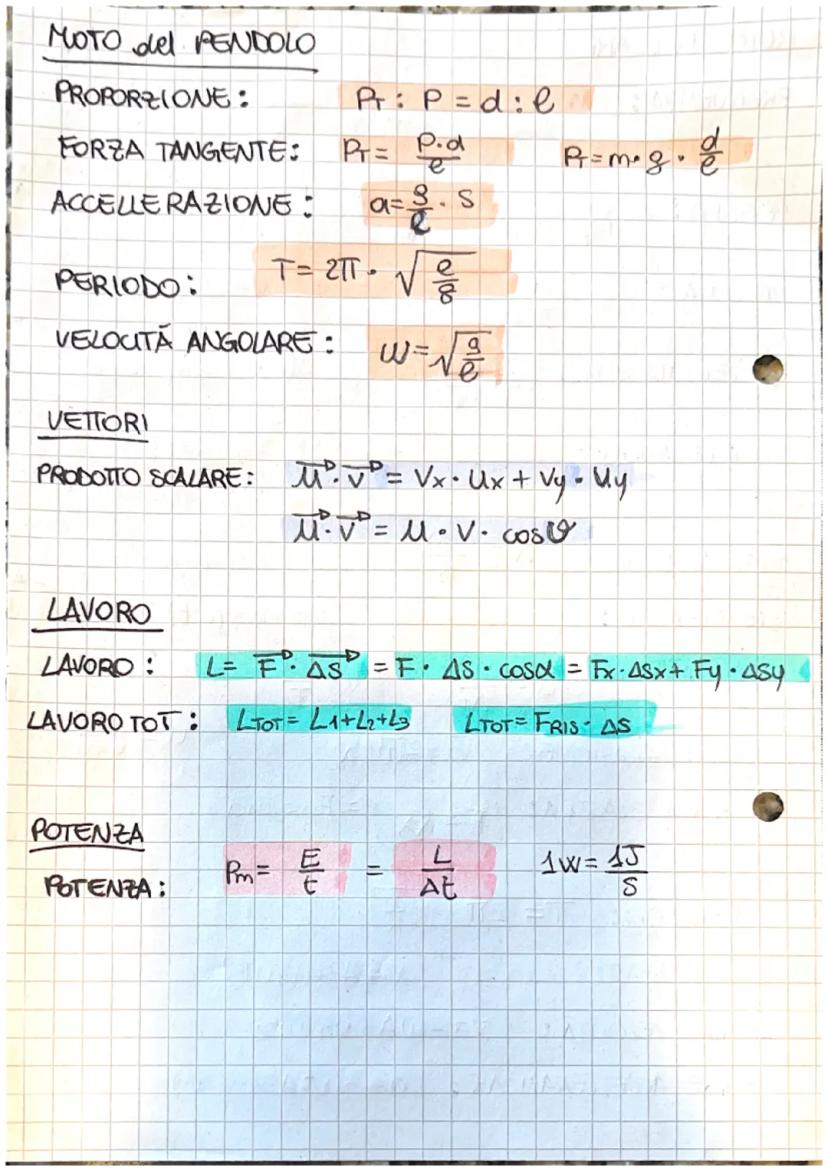 MOTO del PENDOLO
PROPORZIONE: P_T : P = d : l
FORZA TANGENTE: P_T = P·d/l P_T = m·g·d/l
ACCELLERAZIONE: a = g/l · s
PERIODO: T = 2π · √(l/g)
VELOCITÁ ANGOLARE: ω = √(g/l)
VETTORI
PRODOTTO SCALARE: u⃗ · v⃗ = Vx · Ux + Vy · Uy
u⃗ · v⃗ = u · v · cosϑ
LAVORO
LAVORO: L = F⃗ · Δs⃗ = F · Δs · cosα = Fx · Δsx + Fy · Δsy
LAVORO TOT: L_TOT = L1+L2+L3 L_TOT = F_RIS · Δs
POTENZA
POTENZA: Pm = E/t = L/Δt 1W = 1J/s